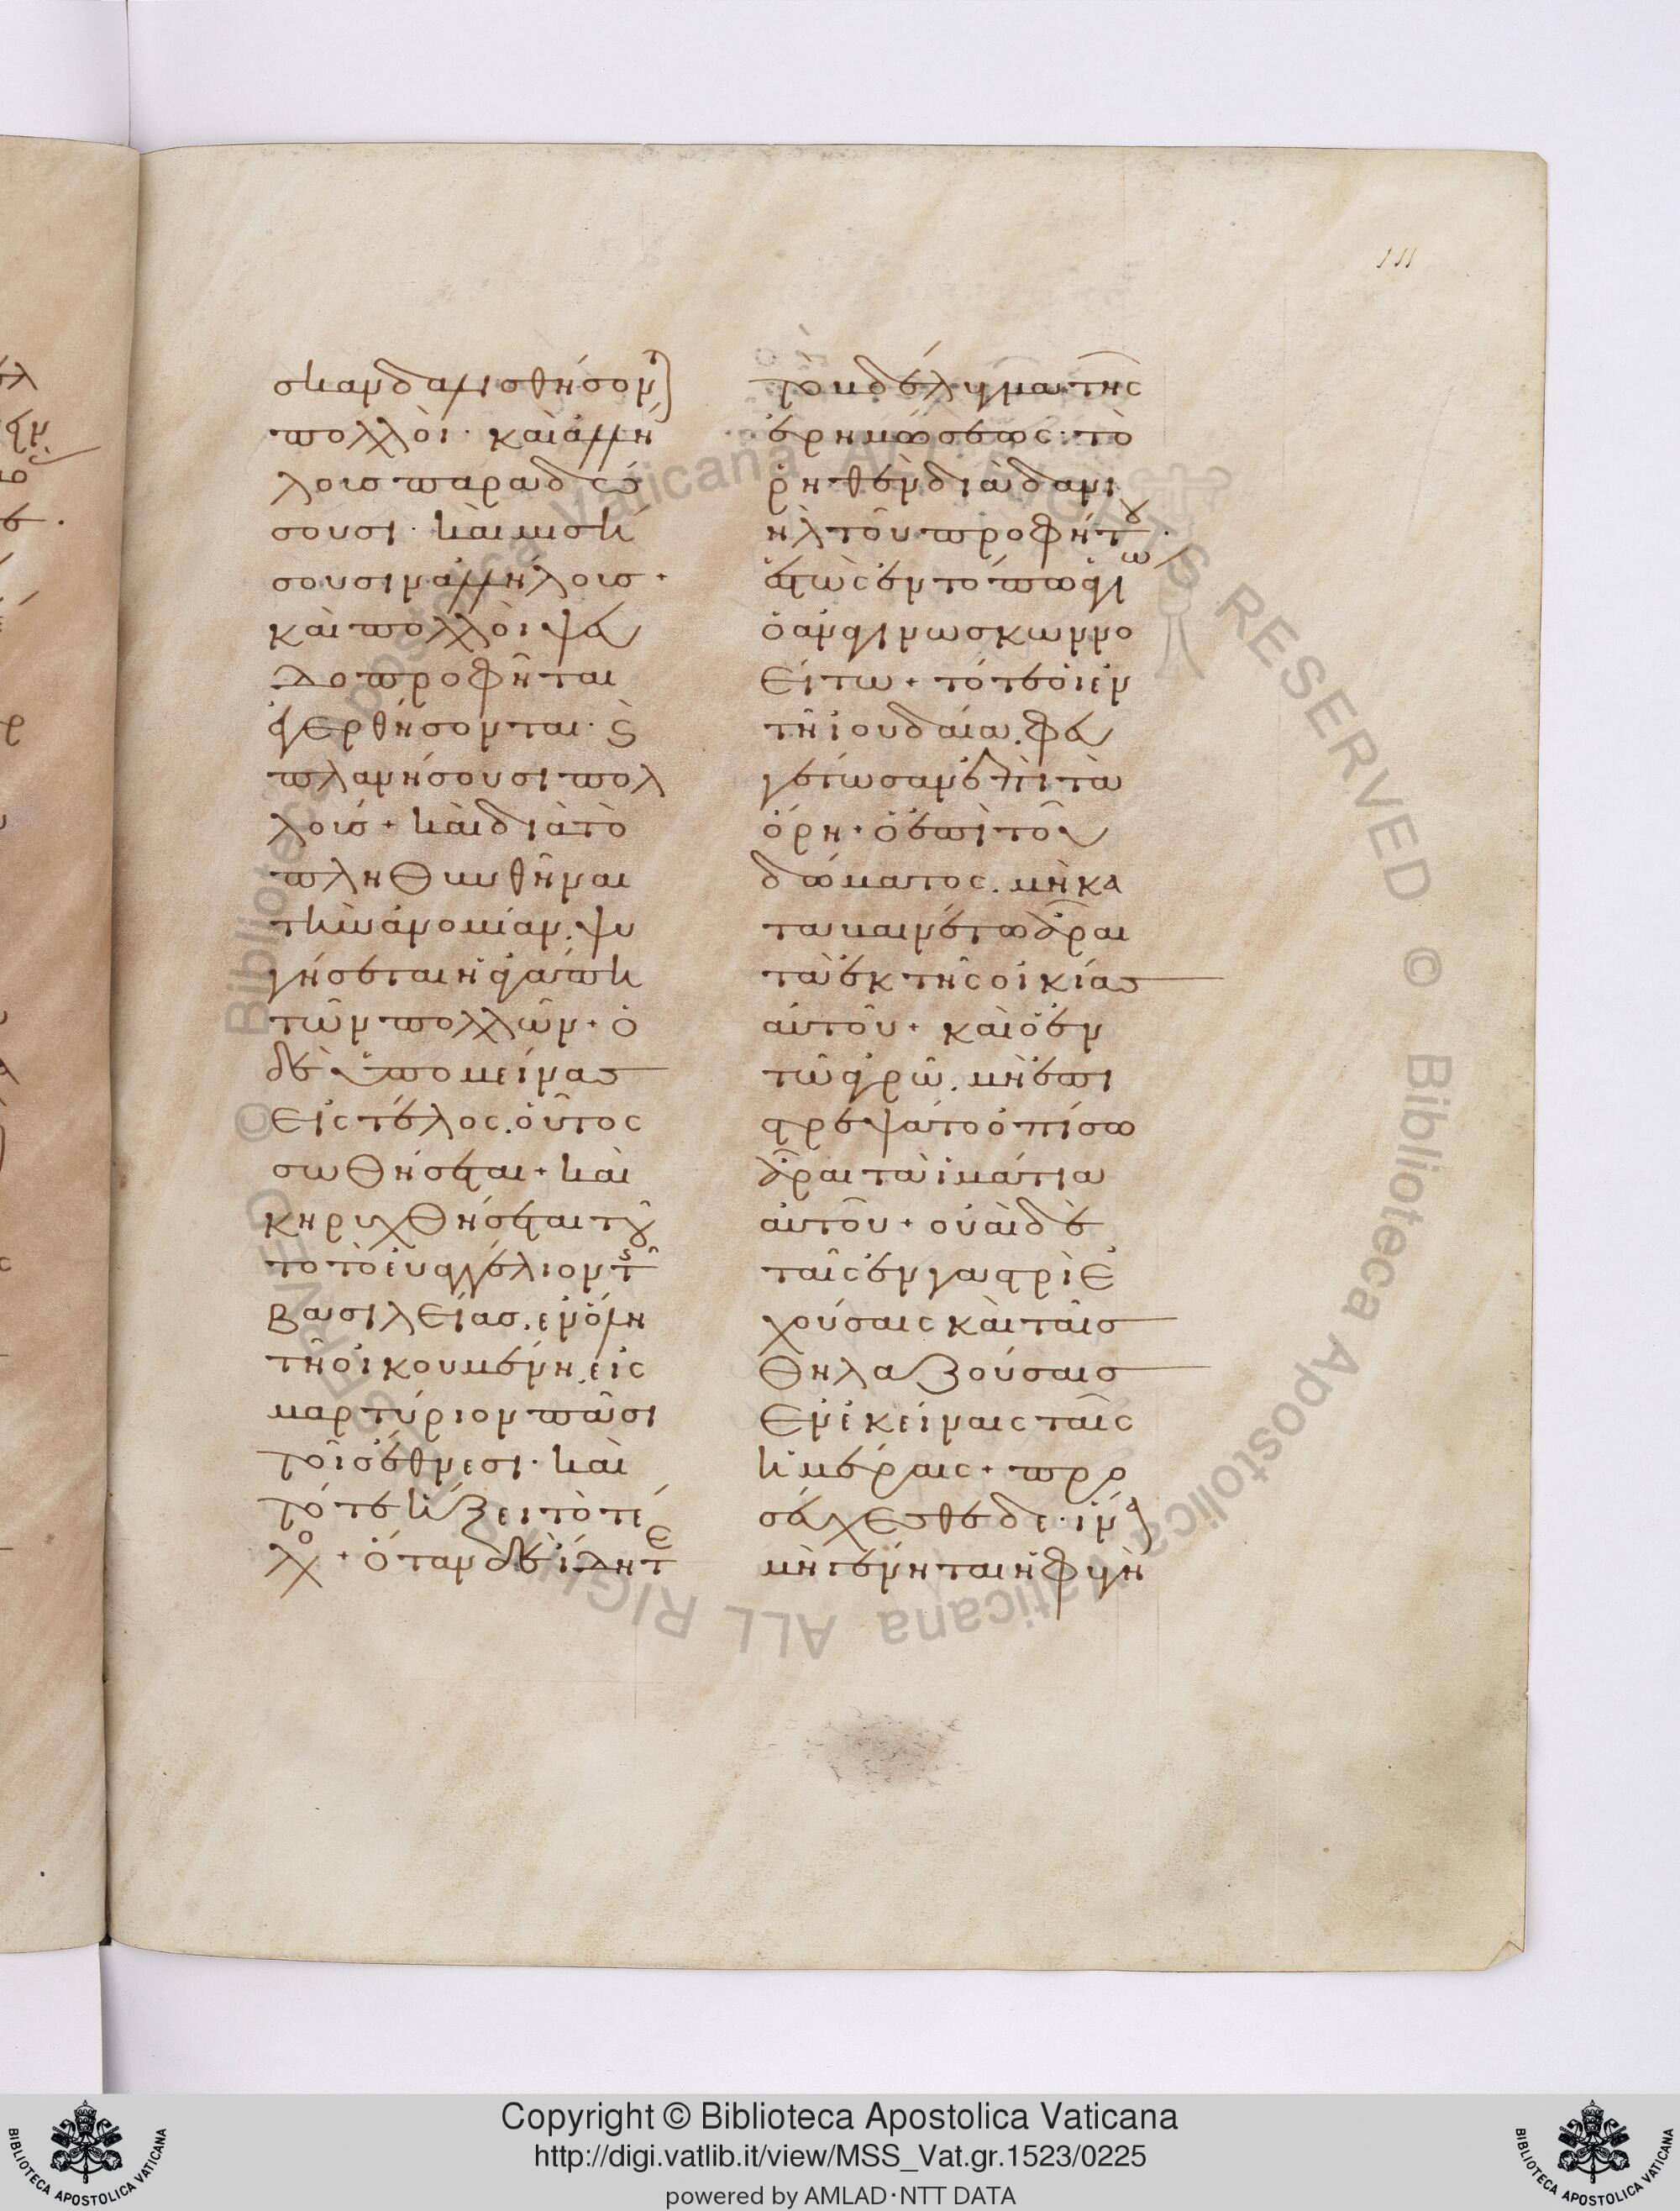 111
σκανδαλισθήσον(τ)
πολλοὶ· καὶ ἀλλή
λοις παραδώ
σουσι· καὶ μιση
σουσιν ἀλλήλοις·
καὶ πολλοὶ ψευ
δοπροφῆται
ἐγερθήσονται· ϗ
πλανήσουσι πολ
λούς· καὶ διὰ τὸ
πληθυνθῆναι
τὴν ἀνομίαν. ψυ
γήσεται ἡ ἀγάπη
τῶν πολλῶν· ὁ
δὲ ὑπομείνας
εἰς τέλος. οὗτος
σωθήσεται· καὶ
κηρυχθήσεται τοῦ
το τὸ εὐαγγέλιον τῆς
βασιλείας. ἐν ὅλη
τῆ οἰκουμένη. εἰς
μαρτύριον πᾶσι
τοῖς ἔθνεσι· καὶ
τότε ἥξει τὸ τέ
λο· ὅταν δὲ ἴδητε
τὸ βδέλυγμα τῆς
ἐρημώσεως· τὸ
ῥηθὲν διὰ δανι
ὴλ τοῦ προφήτου·
ἑστὼς ἐν τόπω ἁγίω
ὁ ἀναγινώσκων νο
είτω· τότε οἱ ἐν
τῆ ἰουδαία. φευ
γέτωσαν ἐπὶ τὰ
ὄρη· ὁ ἐπὶ τοῦ
δώματος. μὴ κα
ταβαινέτω ἆραι
τὰ ἐκ τῆς οἰκίας
αὐτοῦ· καὶ ὁ ἐν
τῶ ἀγρῶ. μὴ ἐπι
στρεψάτο ὀπίσω
ἆραι τὰ ἱμάτια
αὐτοῦ· οὐαὶ δὲ
ταῖς ἐν γαστρὶ ἐ
χούσαις καὶ ταῖς
θηλαζούσαις
ἐν ἐκείναις ταῖς
ἡμέραις· προ
σεύχεσθε δε· ἵνα
μὴ γένηται ἡ φυγὴ
Copyright © Biblioteca Apostolica Vaticana
http://digi.vatlib.it/view/MSS_Vat.gr.1523/0225
powered by AMLAD·NTT DATA
BIBLIOTECA APOSTOLICA VATICANA
BIBLIOTECA APOSTOLICA VATICANA
© Biblioteca Apostolica Vaticana ALL RIGHTS RESERVED © Biblioteca Apostolica Vaticana ALL RIGHTS RESERVED